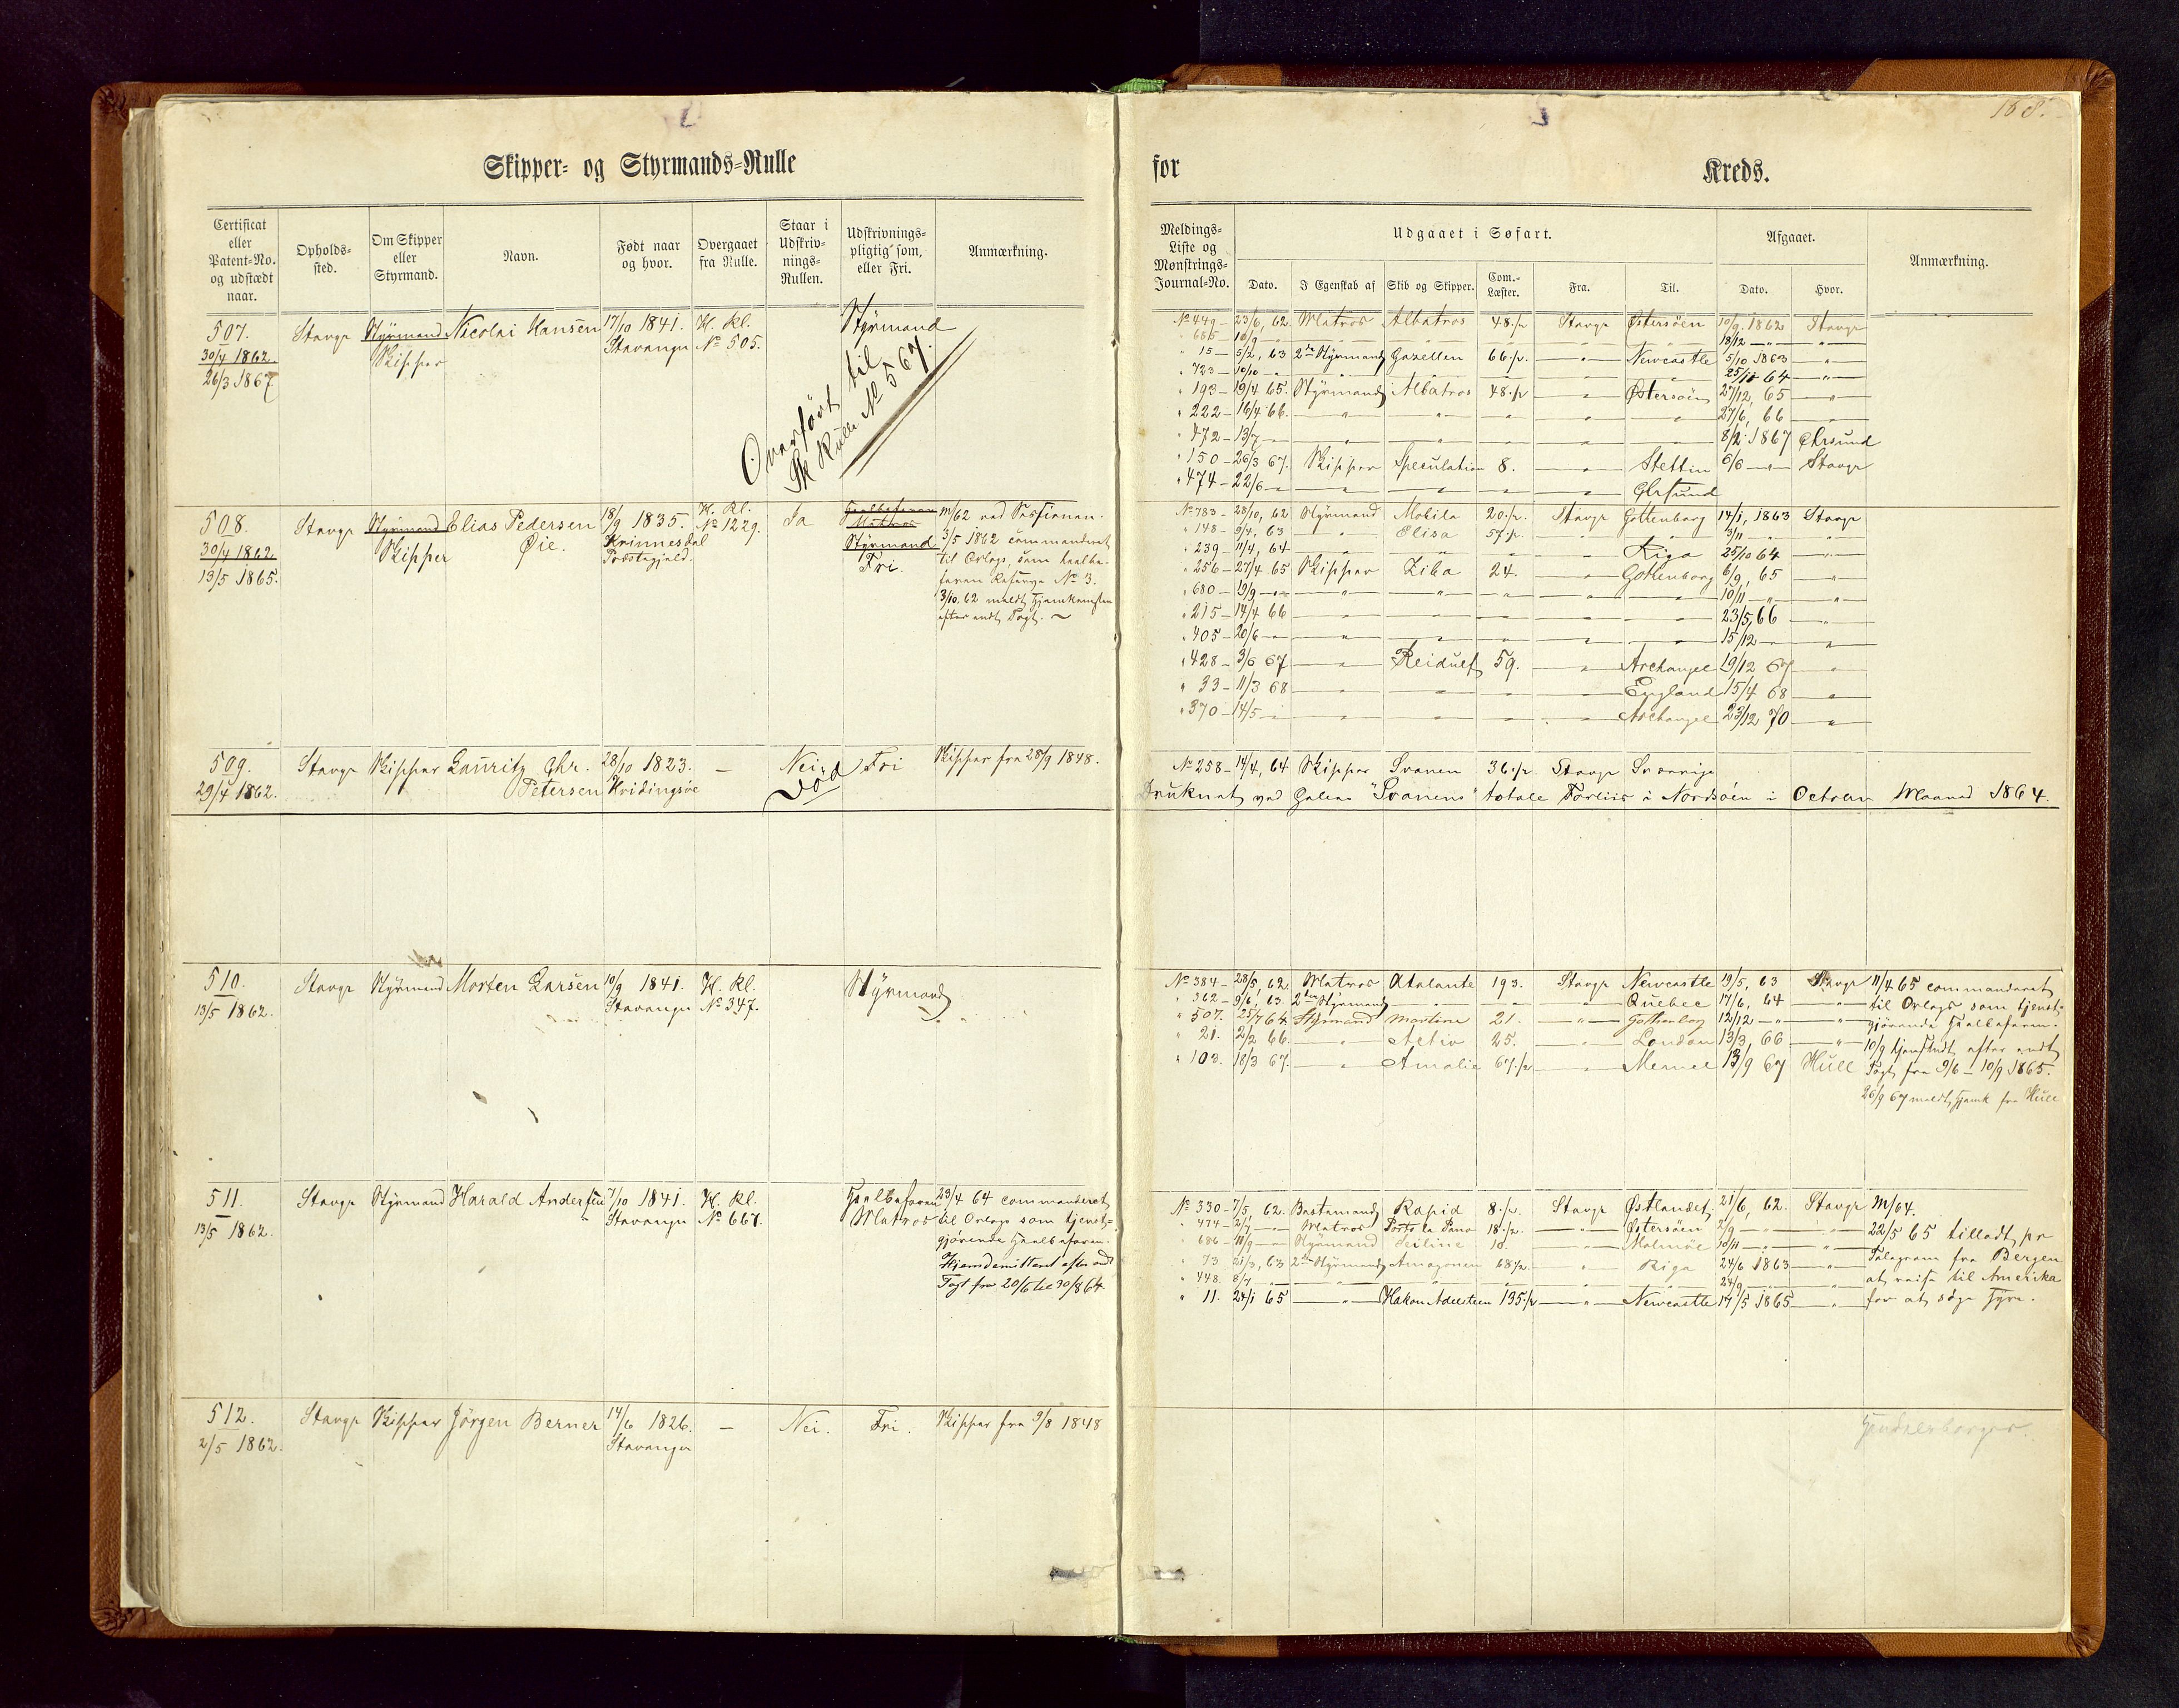 168.
Skipper- og Styrmands-Rulle for Kreds.
Certificat eller Patent-No. og udstædt naar.
Opholds-sted.
Om Skipper eller Styrmand.
Navn.
Født naar og hvor.
Overgaaet fra Rulle.
Staar i Udskriv-nings-Rullen.
Udskrivnings-pligtig som, eller Fri.
Anmærkning.
Meldings-Liste og Mønstrings-Journal-No.
Udgaaet i Søfart.
Dato. I Egenskab af Skib og Skipper. Com.-Læster. Fra. Til.
Afgaaet.
Dato. Hvor.
Anmærkning.
507. Stavgr Styrmand Nicolai Hansen 17/10 1841. H. Rl. Styrmand
30/4 1862. Skipper Stavanger No 505.
26/3 1867
Overført til
Sk Rulle No 567.
No 449 - 23/6, 62 Matros Albatros 48 1/2 Stavgr Østersöen 10/9 1862 Stavgr
" 685 - 10/9 - " 18/12 - " -
" 15 - 5/2, 63 2den Styrmand Gazellen 66 1/2 - " - Newcastle 5/10 1863 - " -
" 723 - 10/10 - " 25/11 64 - " -
" 193 - 19/4 65. Styrmand Albatros 48 1/2 - " - Østersöen 27/12, 65 - " -
" 222 - 16/4 66. - " - 27/6, 66 - " -
" 472 - 13/7 - " - 8/2 1867 Ekrsund
" 150 - 26/3 67. Skipper Speculation 8. - " - Stettin 6/6 - " - Stavgr
" 474 - 22/6 - " - Ekrsund
508. Stavgr Styrmand Elias Pedersen 18/9 1835. H. Rl. Ja
30/4 1862 Skipper Øie. No 1229. Matros
13/5 1865. Præstegjeld. Styrmand
Fri.
3/5 1862 commanderet
til Orlogs, som
No 3.
3/10. 62 meldt Hjemkomsten
efter endt Togt.
No 783 - 28/10, 62 Styrmand Mobila 20 1/2 Stavgr Gottenborg 14/1, 1863 Stavgr
" 148 - 9/4, 63 - " - Elisa 57 1/2 - " - 3/11 - " -
" 239 - 11/4, 64 - " - Riga 25/10 64 - " -
" 256 - 27/4 65 Skipper Ziba 24. - " - Gothenborg 6/9, 65 - " -
" 680 - 19/9 - " - 10/11 - " -
" 215 - 14/4 66 - " - 23/5, 66 - " -
" 405 - 20/6 - " - 15/12 - " -
" 428 - 3/6 67 - " - Reidulf 59. - " - Archangel 19/12 67 - " -
" 33 - 11/3 68 - " - England 15/4 68 - " -
" 370 - 14/5 - " - Archangel 23/12 70 - " -
509. Stavgr Skipper Lauritz Chr. 28/10 1823. - Nei Fri Skipper fra 28/9 1848.
29/4 1862. Petersen Hvidingsøe Död
No 258 - 14/4, 64 Skipper Svanen 36 1/2 Stavgr Sverrige
Druknet ved Galeas "Svanens" totale Forliis i Nordsöen i October Maaned 1864.
510. Stavgr Styrmand Morten Larsen 10/9 1841. H. Rl. Styrmand
13/5 1862. Stavanger No 347.
No 384 - 28/5, 62. Matros Atalante 193. Stavgr Newcastle 19/5, 63 Stavgr 11/4 65 commanderet
" 362 - 9/6, 63. 2den Styrmand - " - Quebec 17/6, 64 - " - til Orlogs som tjenst-
" 507. 25/7 64 Styrmand Martina 21. - " - Gothenborg 12/12 - " - gjørende Halvbefaren.
" 21. 2/2 66. - " - Aktiv 25. - " - London 13/3, 66 - " - 10/9 hjemsendt efter endt
" 103. 18/3 67. - " - Amalie 67 1/2 - " - Memel 13/9 67 Hull Togt fra 9/6 - 10/9 1865.
26/9 67 meldt Hjemk fra Hull
511. Stavgr Styrmand Harald Andersen 7/10 1841. H. Rl. Halvbefaren 23/4 64 commanderet
13/5 1862. Stavanger No 667. Matros til Orlogs som tjenst-
gjørende Halvbefaren.
Hjemdemitteret efter endt
Togt fra 20/5 til 30/8 64.
No 330 - 7/5, 62. Bestemand Rapid 8 1/2 Stavgr Østlandet 21/6, 62. Stavgr M/64.
" 474 - 2/7 - " - Matros 18 1/2 - " - Østersöen 2/9 - " - 22/5 65 tilladt pr
" 686 - 11/9 - " - Styrmand 10. - " - Malmöe 10/11 - " - Telegram fra Bergen
" 73 21/3, 63 2den Styrmand Amazonen 68 1/2 - " - Riga 24/6 1863 - " - at reise til Amerika
" 448. 8/7 - " - 24/9 - " - for at söge Hyre.
" 11. 24/1 65 - " - Hakon Adelsteen 195 1/2 - " - Newcastle 17/5 1865 - " -
512. Stavgr Skipper Jörgen Berner 14/6 1826. - Nei. Fri. Skipper fra 9/8 1848
2/5 1862. Stavanger